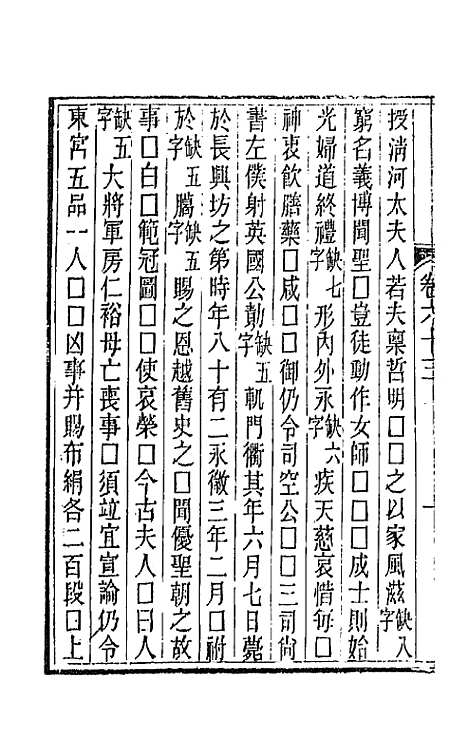 授清河太夫人若夫稟哲明□□之以家風滋缺八字
窮名義博聞聖□豈徒動作女師□□□成士則始
光婦道終禮缺七字形內外永缺六字疾天慈哀惜每□
神衷飲膳藥□咸□□御仍令司空公□□三司尚
書左僕射英國公勣缺五字軌門衢其年六月七日薨
於長興坊之第時年八十有二永徽三年二月□祔
於缺五字賜缺五字賜之恩越舊史之□聞優聖朝之故
事□白□範冠圖□□使哀榮□今古夫人□曰人
缺五字大將軍房仁裕母亡喪事□須竝宜宣諭仍令
東宮五品一人□□凶事并賜布絹各二百段□上
卷六十三
一